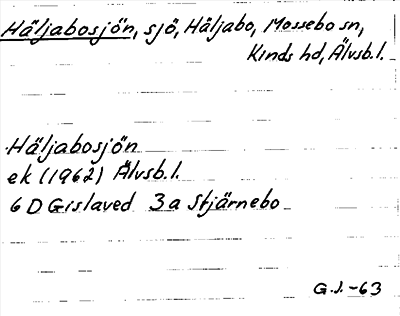 Häljabosjön, sjö, Häljabo, Mossebo sn,
Kinds hd, Älvsb. l.
Häljabosjön
ek (1962) Älvsb. l.
6 D Gislaved 3 a Stjärnebo
G. J. -63